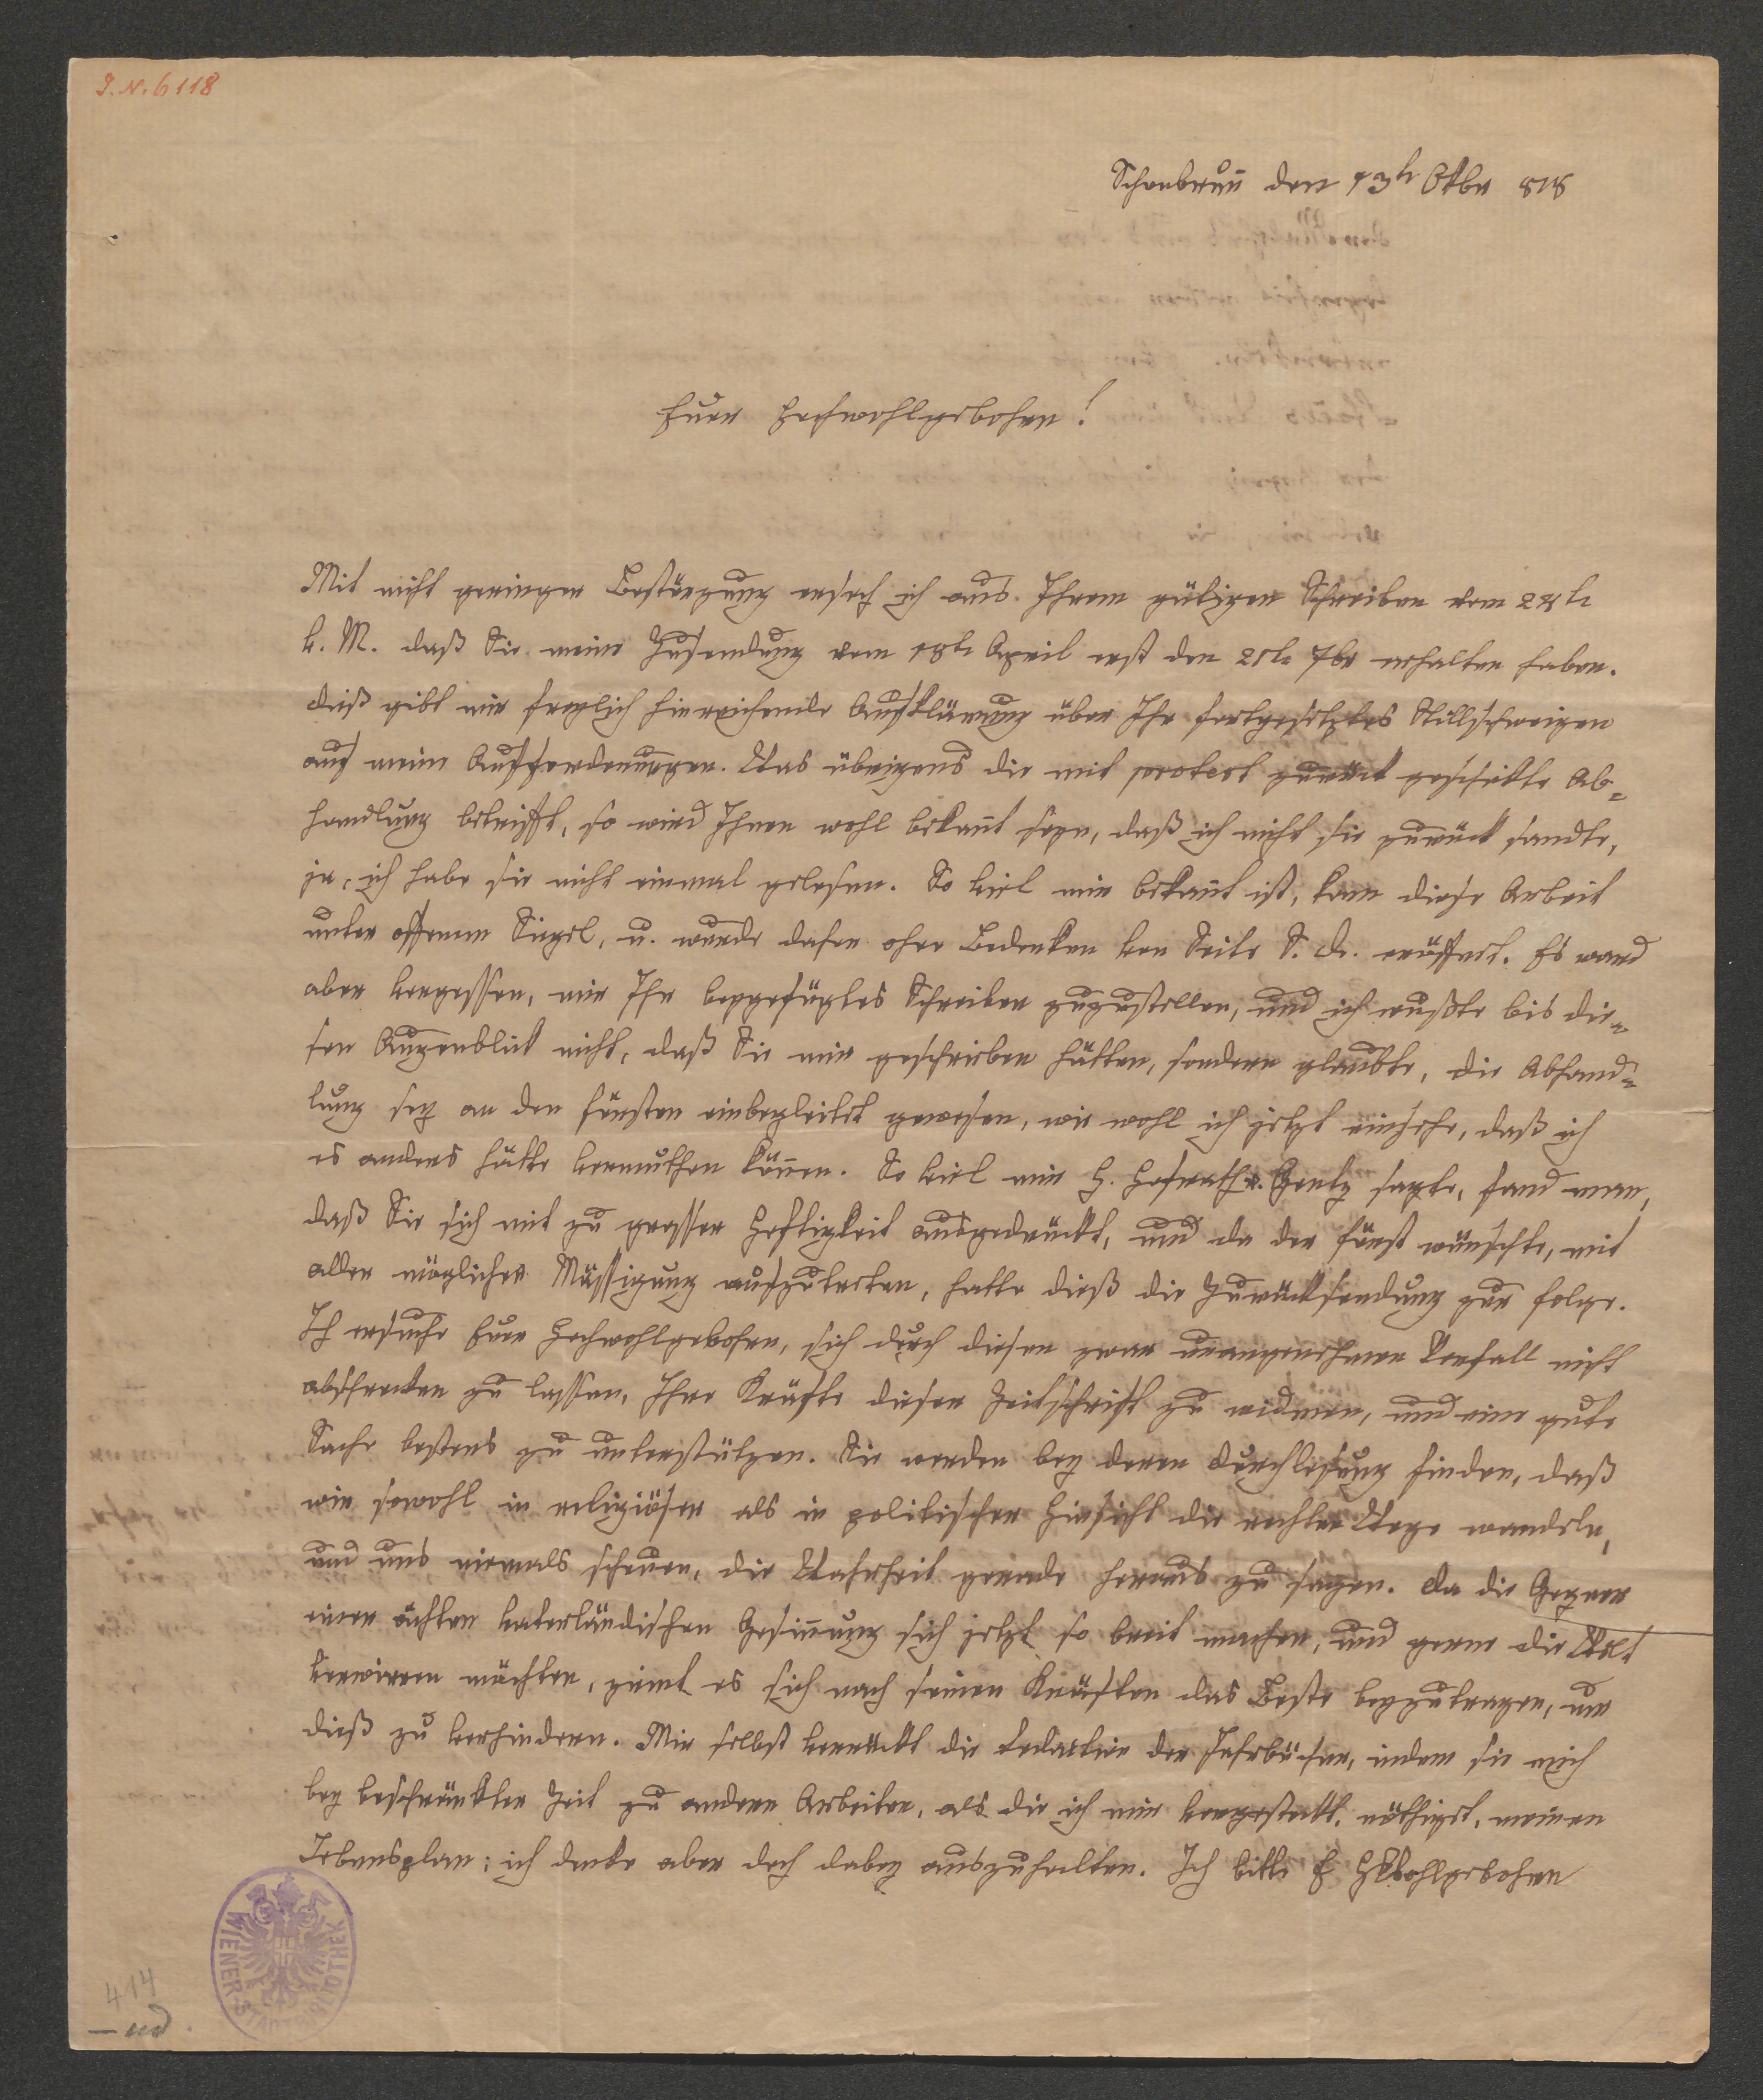 I. N. 6118
Schönbrunn den 13t Oktbr 818
Euer Hochwohlgebohren!
Mit nicht geringer Bestürzung ersah ich aus Ihrem gütigen Schreiben vom 28t
v. M. daß Sie meine Zusendung vom 18t April erst den 25t 7br erhalten haben.
Dieß gibt mir freylich hinreichende Aufklärung über Ihr fortgesetztes Stillschweigen
auf meine Aufforderungen. Was übrigens die mit protest zurück geschickte Ab=
handlung betrifft, so wird Ihnen wohl bekannt seyn, daß ich nicht sie zurück sandte,
ja, ich habe sie nicht einmal gelesen. So viel mir bekannt ist, kam diese Arbeit
unter offenem Siegel, u. wurde daher ohne Bedenken von Seite S. D. eröffnet. Es ward
aber vergessen, mir Ihr beygefügtes Schreiben zuzustellen, und ich wußte bis die=
sen Augenblick nicht, daß Sie mir geschrieben hätten, sondern glaubte, die Abhand=
lung sey an den Fürsten einbegleitet gewesen, wie wohl ich jetzt einsehe, daß ich
es anders hätte vermuthen können. So viel mir H. Hofrath v. Gentz sagte, fand man,
daß Sie sich mit zu grosser Heftigkeit ausgedrückt, und da der Fürst wünschte, mit
aller möglichen Mässigung aufzutreten, hatte dieß die Zurücksendung zur Folge.
Ich ersuche Euer Hochwohlgebohren, sich durch diesen zwar unangenehmen Vorfall nicht
abschrecken zu lassen, Ihre Kräfte dieser Zeitschrift zu widmen, und eine gute
Sache bestens zu unterstützen. Sie werden bey deren Durchlesung finden, daß
wir sowohl in religiöser als in politischer Hinsicht die rechten Wege wandeln,
und uns niemals scheuen, die Wahrheit gerade heraus zu sagen. Da die Gegner
einer ächten vaterländischen Gesinnung sich jetzt so breit machen, und gerne die Welt
verwirren möchten, ziemt es sich nach seinen Kräften das Beste beyzutragen, um
dieß zu verhindern. Mir selbst verrückt die Redaction der Jahrbücher, indem sie mich
bey beschränkter Zeit zu andern Arbeiten, als die ich mir vorgesteckt, nöthiget, meinen
Lebensplan; ich denke aber doch dabey auszuhalten. Ich bitte E Hochwohlgebohren
WIENER STADTBIBLIOTHEK
414